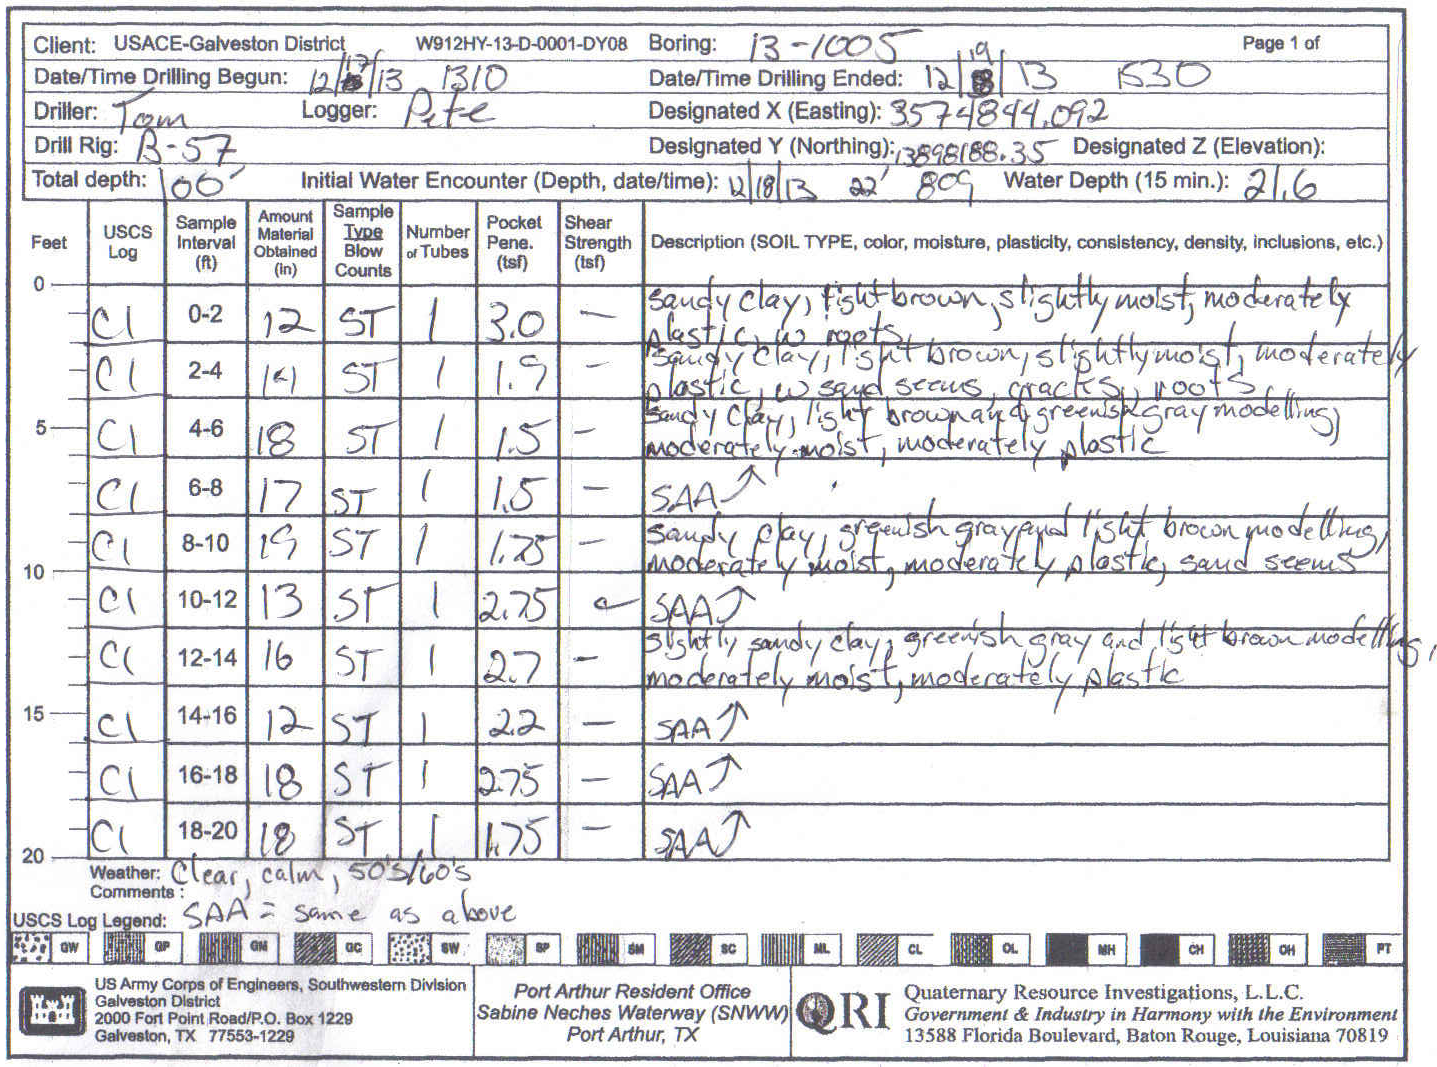 Client: USACE-Galveston District W912HY-13-D-0001-DY08 Boring: 13-1005 Page 1 of
Date/Time Drilling Begun: 12/17/13 1310 Date/Time Drilling Ended: 12/19/13 1530
Driller: Tom Logger: Pete Designated X (Easting): 3574844.092
Drill Rig: B-57 Designated Y (Northing): 13898188.35 Designated Z (Elevation):
Total depth: 100' Initial Water Encounter (Depth, date/time): 12/18/13 22' 809 Water Depth (15 min.): 21.6
Feet USCS Log Sample Interval (ft) Amount Material Obtained (in) Sample Type Blow Counts Number of Tubes Pocket Pene. (tsf) Shear Strength (tsf) Description (SOIL TYPE, color, moisture, plasticity, consistency, density, inclusions, etc.)
0
Cl 0-2 12 ST 1 3.0 — sandy clay, light brown, slightly moist, moderately
plastic, w roots
Cl 2-4 ST 1 1.9 — sandy clay, light brown, slightly moist, moderately
plastic, w sand seems, cracks, roots
5 Cl 4-6 18 ST 1 1.5 — sandy clay, light brown and greenish gray modelling,
moderately moist, moderately plastic
Cl 6-8 17 ST 1 1.5 — SAA ↑
Cl 8-10 19 ST 1 1.75 — sandy clay, greenish gray and light brown modelling,
moderately moist, moderately plastic, sand seems
10
Cl 10-12 13 ST 1 2.75 — SAA ↑
Cl 12-14 16 ST 1 2.7 — slightly sandy clay, greenish gray and light brown modelling,
moderately moist, moderately plastic
15 Cl 14-16 12 ST 1 2.2 — SAA ↑
Cl 16-18 18 ST 1 2.75 — SAA ↑
Cl 18-20 18 ST 1 1.75 — SAA ↑
20
Weather: Clear, calm, 50's/60's
Comments :
USCS Log Legend: SAA = same as above
GW GP GM GC SW SP SM SC ML CL OL MH CH OH PT
US Army Corps of Engineers, Southwestern Division
Galveston District
2000 Fort Point Road/P.O. Box 1229
Galveston, TX 77553-1229
Port Arthur Resident Office
Sabine Neches Waterway (SNWW)
Port Arthur, TX
QRI
Quaternary Resource Investigations, L.L.C.
Government & Industry in Harmony with the Environment
13588 Florida Boulevard, Baton Rouge, Louisiana 70819